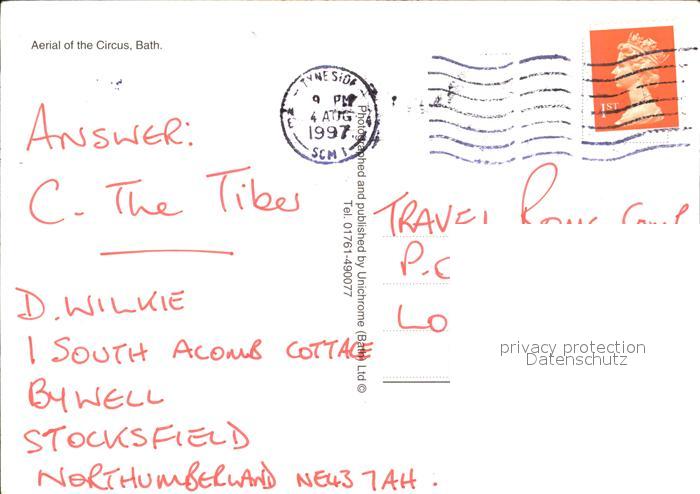 Aerial of the Circus, Bath.
TYNESIDE
9 PM
4 AUG
1997
SCM 1
1ST
ANSWER:
C. The Tiber
D. WILKIE
1 SOUTH ACOMB COTTAGE
BYWELL
STOCKSFIELD
NORTHUMBERLAND NE43 7AH.
Photographed and published by Unichrome (Bath) Ltd ©
Tel. 01761-490077
TRAVEL
P.O
LO
privacy protection
Datenschutz